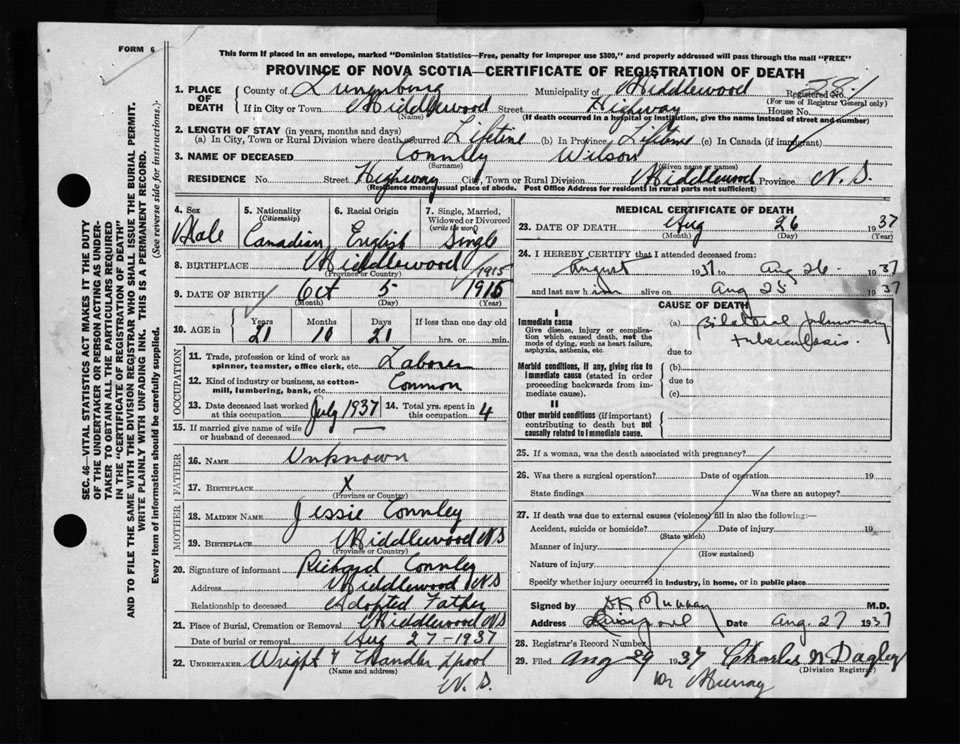 FORM 6
This form if placed in an envelope, marked "Dominion Statistics—Free, penalty for improper use $300," and properly addressed will pass through the mail "FREE"
PROVINCE OF NOVA SCOTIA—CERTIFICATE OF REGISTRATION OF DEATH
1. PLACE OF DEATH County of Lunenburg Municipality of Middlewood Registered No.
(For use of Registrar General only)
If in City or Town Middlewood Street Highway House No.
(Name) (If death occurred in a hospital or institution, give the name instead of street and number)
2. LENGTH OF STAY (in years, months and days)
(a) In City, Town or Rural Division where death occurred Lifetime (b) In Province Lifetime (c) In Canada (if immigrant)
3. NAME OF DECEASED Connley Wilson
(Surname) (Given name or names)
RESIDENCE No. Street Highway City, Town or Rural Division Middlewood Province N.S.
(Residence means usual place of abode. Post Office Address for residents in rural parts not sufficient)
4. Sex Male
5. Nationality (Citizenship) Canadian
6. Racial Origin English
7. Single, Married, Widowed or Divorced (write the word) Single
8. BIRTHPLACE Middlewood
(Province or Country)
1915
9. DATE OF BIRTH Oct 5 1915
(Month) (Day) (Year)
10. AGE in Years Months Days If less than one day old
21 10 21 hrs. or min.
OCCUPATION
11. Trade, profession or kind of work as spinner, teamster, office clerk, etc. Laborer
12. Kind of industry or business, as cotton-mill, lumbering, bank, etc. Common
13. Date deceased last worked at this occupation July 1937 14. Total yrs. spent in this occupation 4
15. If married give name of wife or husband of deceased —
FATHER
16. NAME Unknown
17. BIRTHPLACE X
(Province or Country)
MOTHER
18. MAIDEN NAME Jessie Connley
19. BIRTHPLACE Middlewood NS
(Province or Country)
20. Signature of informant Richard Connley
Address Middlewood NS
Relationship to deceased Adopted Father
21. Place of Burial, Cremation or Removal Middlewood NS
Date of burial or removal Aug 27-1937
22. UNDERTAKER Wright & Chandler Lpool
(Name and address)
N.S.
MEDICAL CERTIFICATE OF DEATH
23. DATE OF DEATH Aug 26 1937
(Month) (Day) (Year)
24. I HEREBY CERTIFY that I attended deceased from:
August 1937 to Aug 26 1937
and last saw him alive on Aug 25 1937
CAUSE OF DEATH
I
Immediate cause
Give disease, injury or complication which caused death, not the mode of dying, such as heart failure, asphyxia, asthenia, etc.
(a) Bilateral pulmonary tuberculosis.
due to
Morbid conditions, if any, giving rise to immediate cause (stated in order proceeding backwards from immediate cause).
(b)
due to
(c)
II
Other morbid conditions (if important) contributing to death but not causally related to immediate cause.
25. If a woman, was the death associated with pregnancy?
26. Was there a surgical operation? Date of operation 19
State findings Was there an autopsy?
27. If death was due to external causes (violence) fill in also the following:—
Accident, suicide or homicide? Date of injury 19
(State which)
Manner of injury
(How sustained)
Nature of injury
Specify whether injury occurred in industry, in home, or in public place
Signed by Murray M.D.
Address Liverpool Date Aug. 27 1937
28. Registrar's Record Number
29. Filed Aug 29 1937 Charles N Dagley
(Division Registrar)
Murray
SEC. 46—VITAL STATISTICS ACT MAKES IT THE DUTY
OF THE UNDERTAKER OR PERSON ACTING AS UNDER-
TAKER TO OBTAIN ALL THE PARTICULARS REQUIRED
IN THE "CERTIFICATE OF REGISTRATION OF DEATH"
AND TO FILE THE SAME WITH THE DIVISION REGISTRAR WHO SHALL ISSUE THE BURIAL PERMIT.
WRITE PLAINLY WITH UNFADING INK. THIS IS A PERMANENT RECORD.
Every item of information should be carefully supplied. (See reverse side for instructions.)